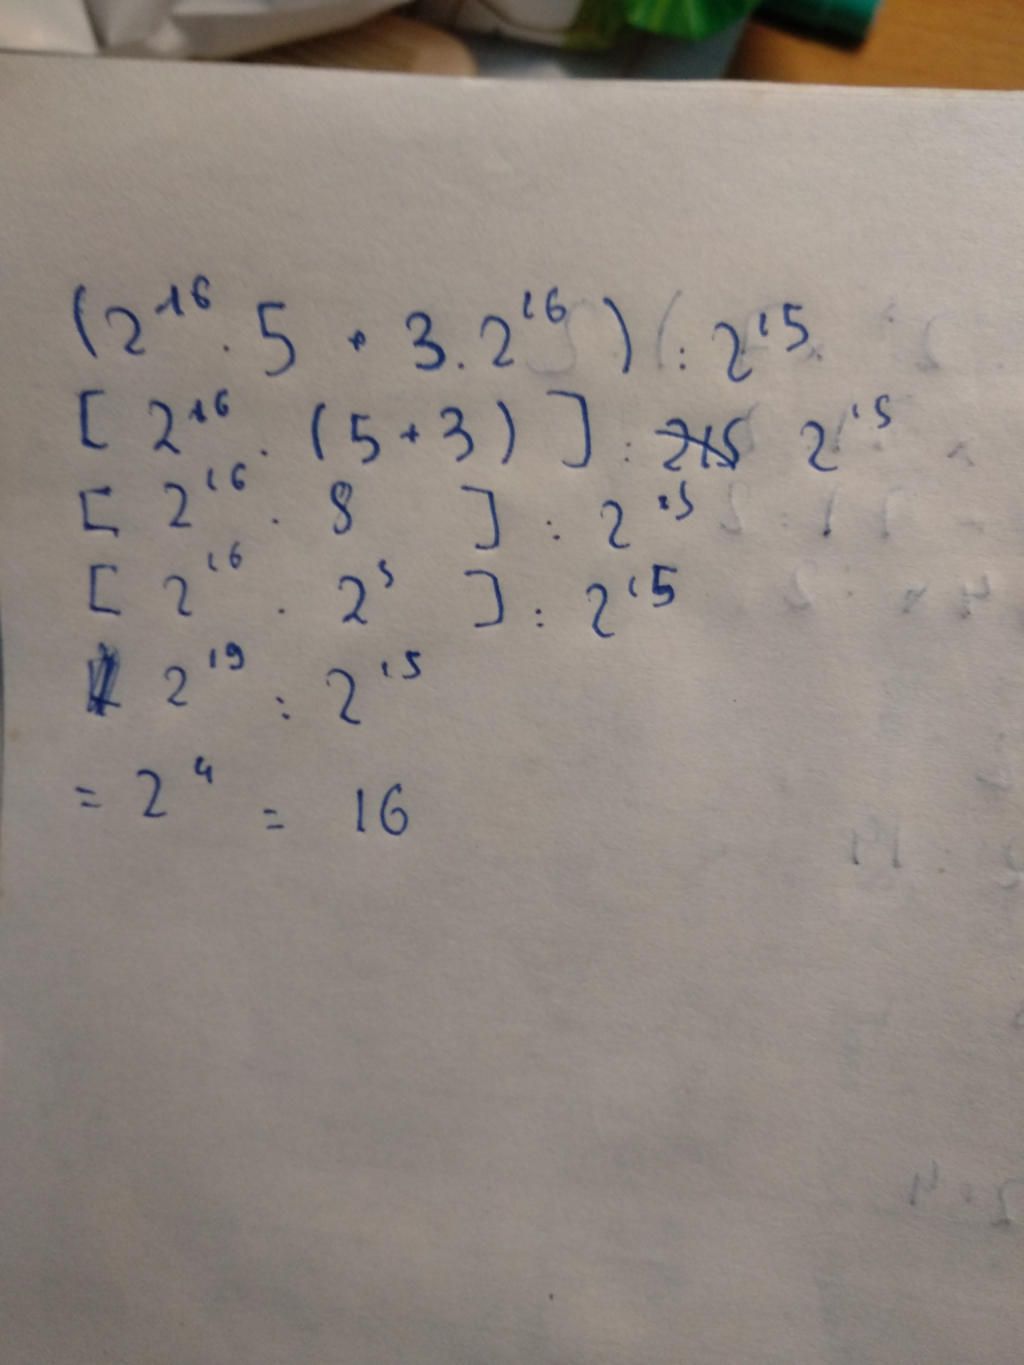 (2¹⁶ . 5 + 3 . 2¹⁶) : 2¹⁵
[ 2¹⁶ . (5 + 3) ] : 2¹⁵
[ 2¹⁶ . 8 ] : 2¹⁵
[ 2¹⁶ . 2³ ] : 2¹⁵
2¹⁹ : 2¹⁵
= 2⁴ = 16